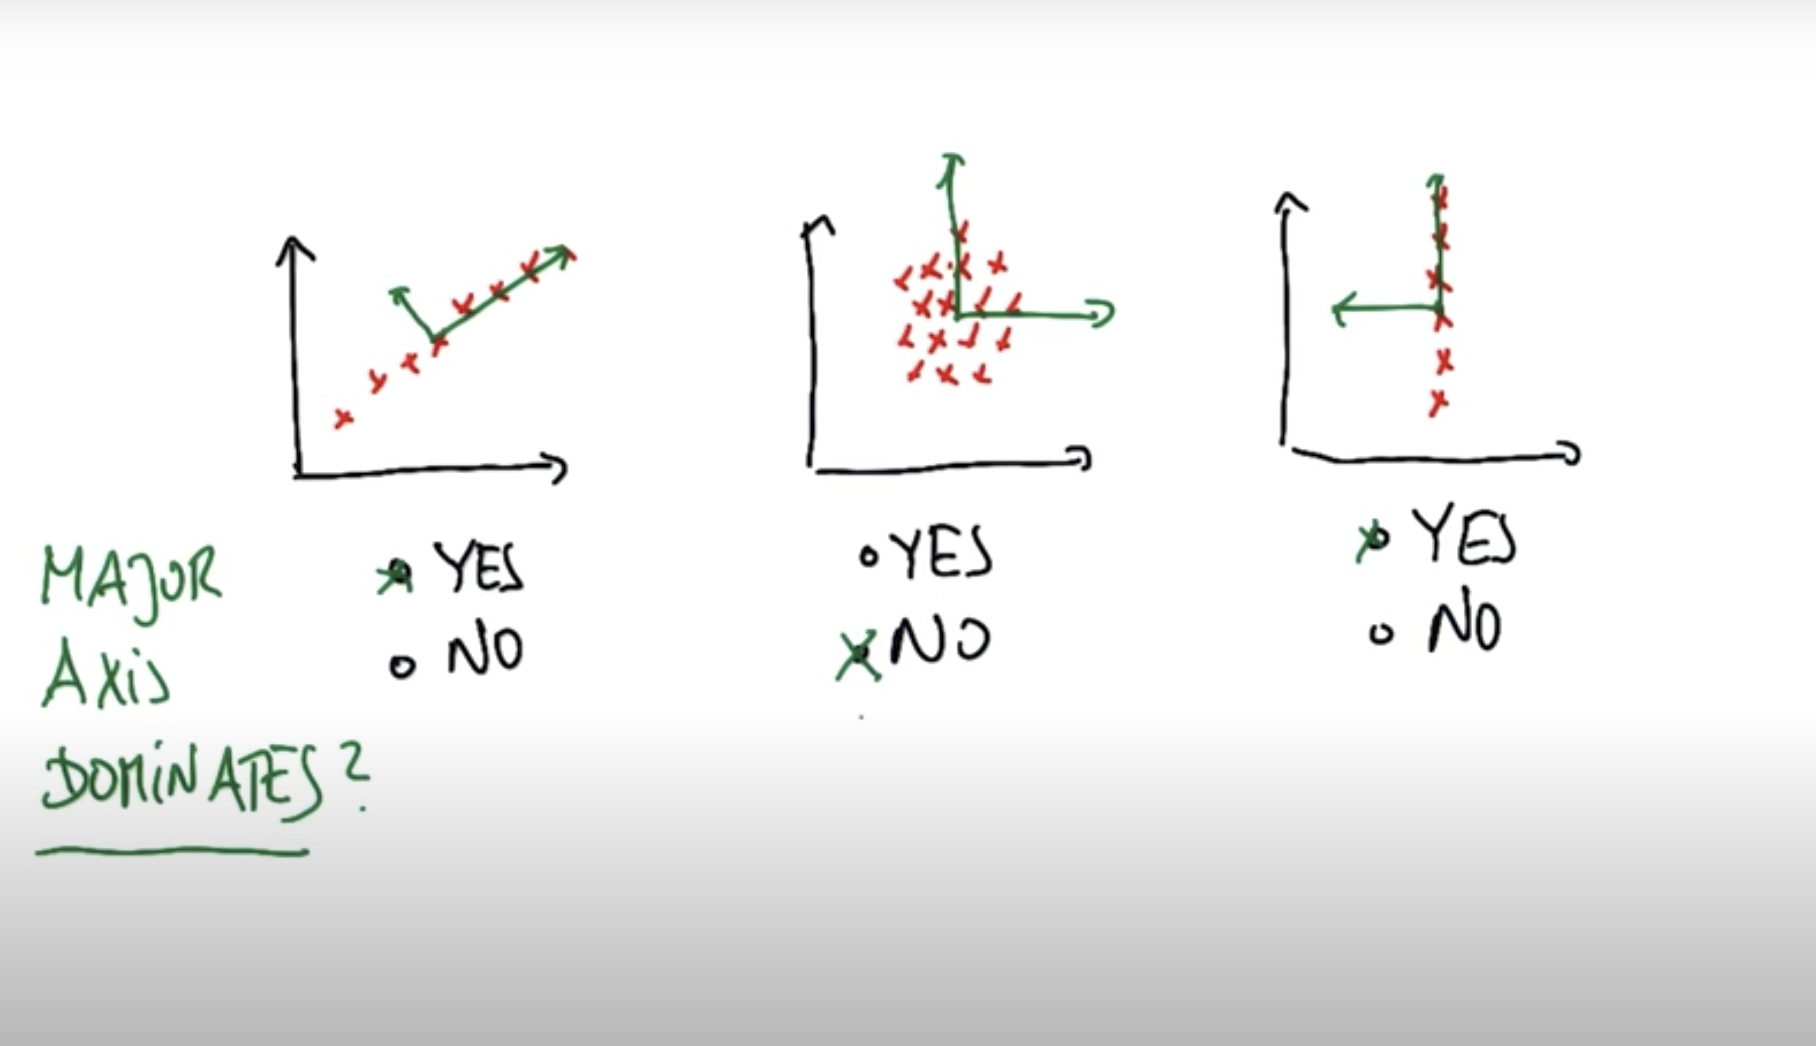 MAJOR
AXiS
DOMiNATES?
YES
NO
YES
NO
YES
NO